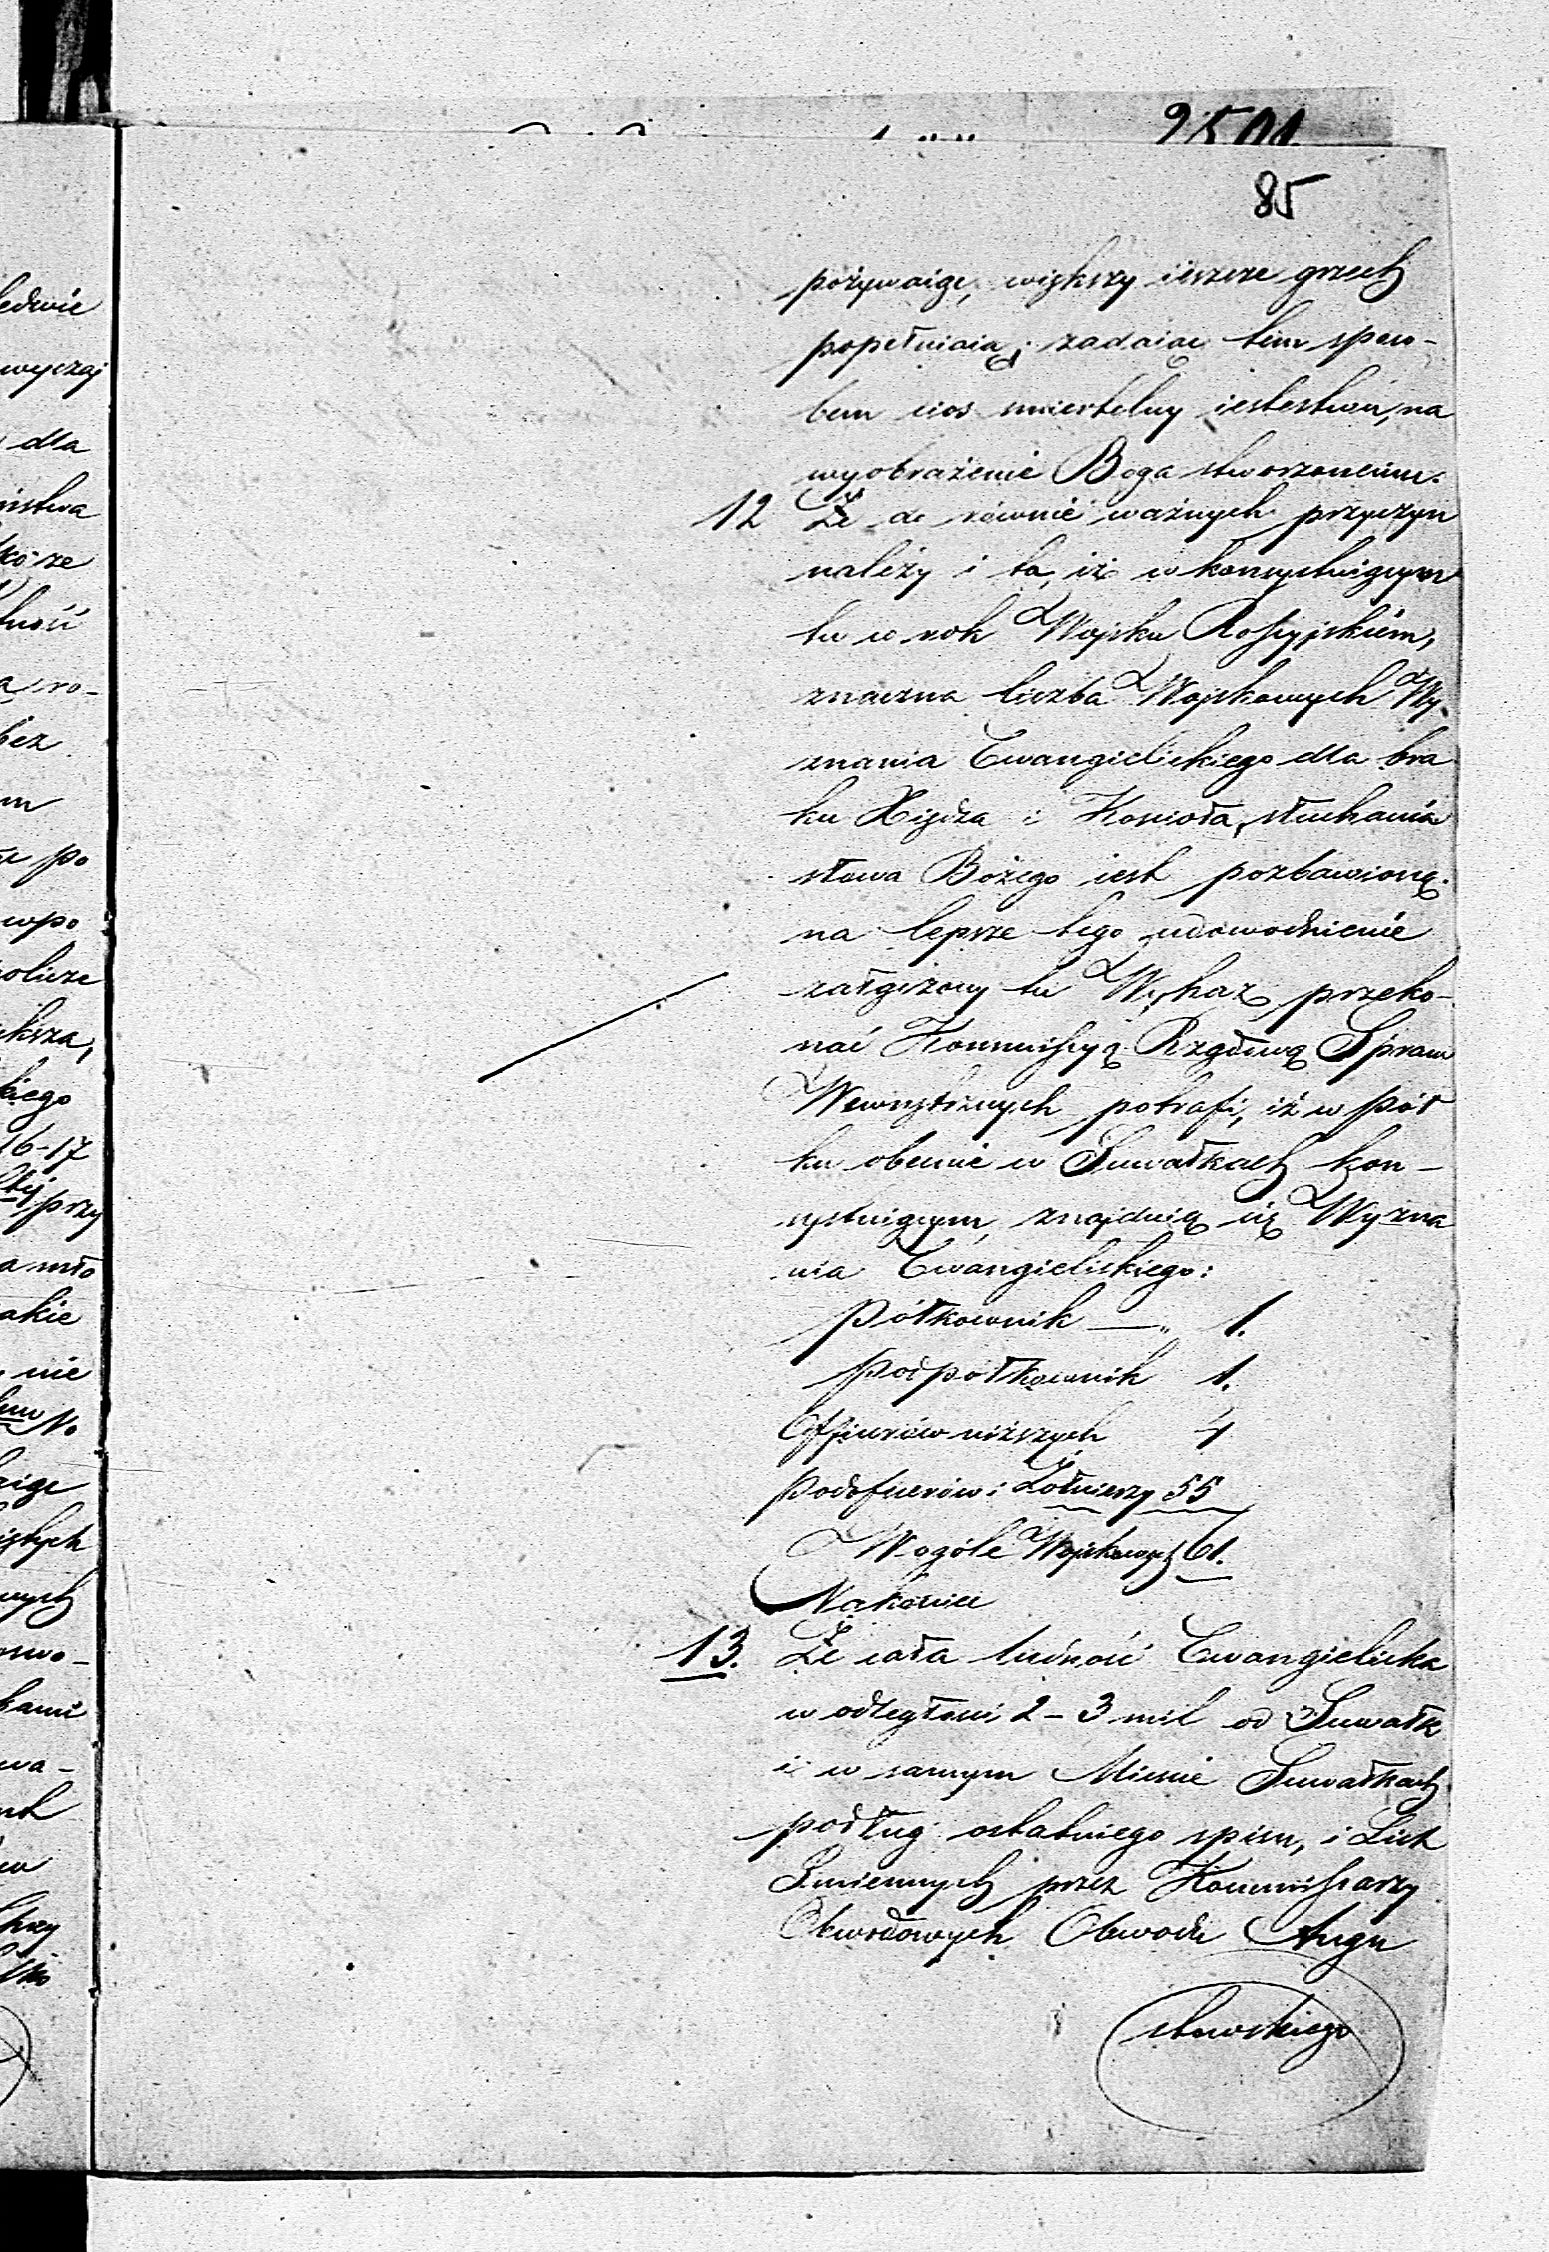 85
pożywaiąc, większy ieszcze grzech
popełniaią; zadaiąc tem sposo-
bem cios smiertelny iestestwu, na
wyobrażenie Boga stworzonemu.
12 Że do równie ważnych przyczyn
należy i ta, iż w konsystuiącym
tu co rok Wojsku Rossyjskiém,
znaczna liczba Wojskowych Wy-
znania Ewangielickiego dla bra
ku Xiędza i Kosioła, słuchania
słowa Bożego iest pozbawioną.
na lepsze tego udowodnienie
załączony tu Wykaz przeko-
nać Kommissyą Rządową Spraw
Wewnętrznych potrafi, iż w pół
ku obecnie w Suwałkach kon-
systuiącym, znajduią się Wyzna
nia Ewangielickiego:
Półkownik — „ 1.
Podpółkownik 1.
Officerów niższych 4
Podoficerów i Żołnierzy 55
Wogóle Wojskowych 61.
Nakoniec
13. Że cała ludność Ewangielicka
w odległości 2-3 mil od Suwałk
i w samym Miescie Suwałkach
podług ostatniego spisu, i List
Imiennych przez Kommissarzy
Obwodowych Obwodu Augu
stowskiego
ledwie
wyczaj
dla
ństwa
że
ność
ro-
bez
m
po
wpo
ksza,
kiego
16-17
przy
a mło
akie
nie
No
nych
kami
wa-